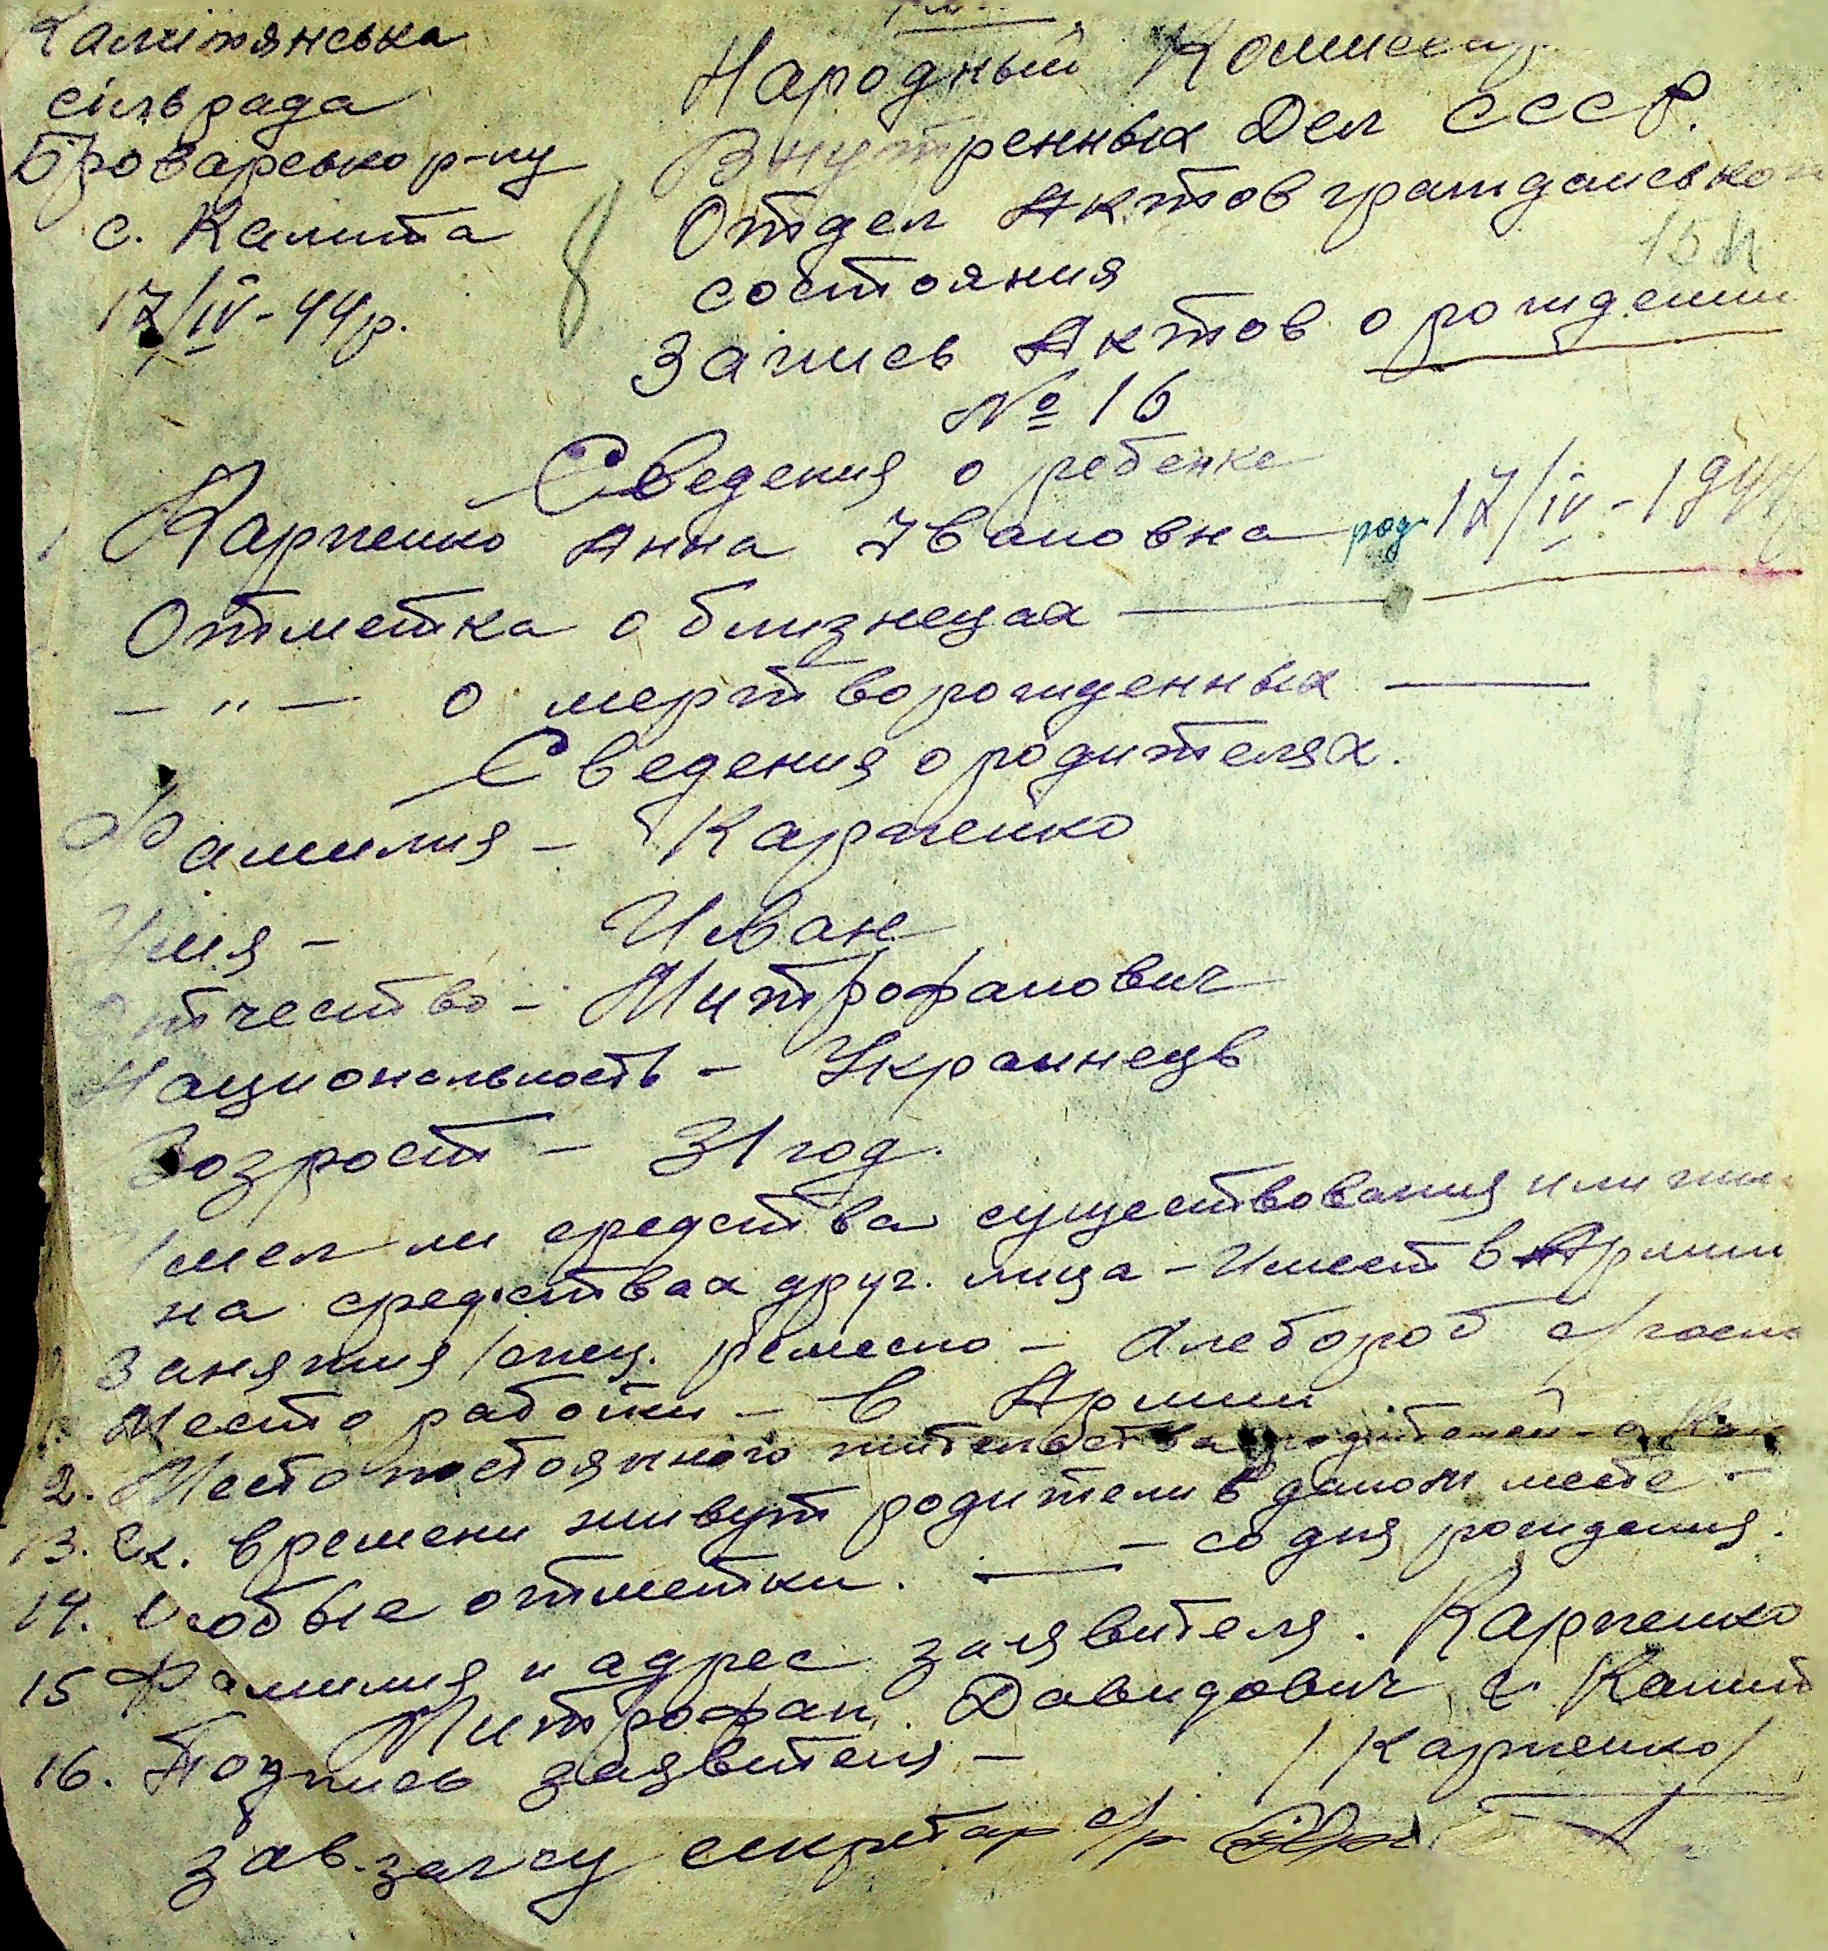 Калитянська
сільрада
Броварсько р-ну
с. Калита
17/IV-44р.
8
Народный Комиссар
Внутренных Дел СССР.
Отдел Актов гражданського
состояния
15
Запись Актов о рождении
№ 16
Сведения о ребенке
Карпенко Анна Івановна род. 17/IV-1944
Отметка о близнецах —
— " — о мертворожденных —
Сведения о родителях.
Фамилия - Карпенко
Имя - Иван
Отчество - Митрофанович
Национальность - Украинець
Возрост - 31 год.
Имел ли средства существования или жил
на средствах друг. лица - Имеет в Армии
Занятия/спец. ремесло - Хлебороб с/госп
Место работы - в Армии
2. Место постоянного жительства родителей - с. Кал
13. Ск. времени живут родители в даном месте -
- со дня рождения.
14. Особые отметки. —
15 Фамилия и адрес заявителя. Карпенко
Митрофан Давидович с. Калит
16. Подпись заявителя - /Карпенко/
Зав. загсу секретар с/р